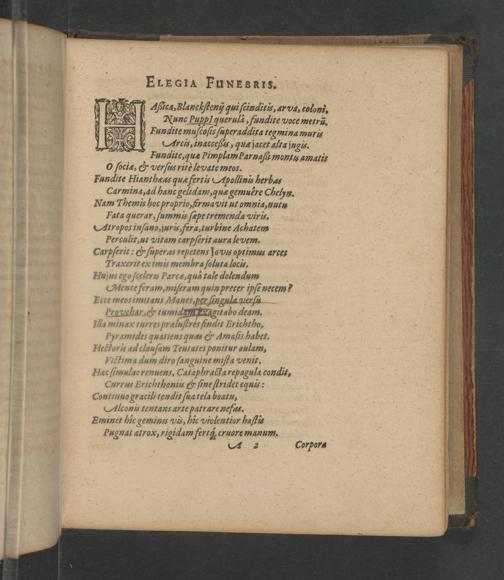 ELEGIA FUNEBRIS.
HAssica, Blanckstenij qui scinditis, arva, coloni,
Nunc Puppi querulâ, fundite voce metrū.
Fundite muscosis superaddita tegmina muris
Arcis, inaccessis, quæ jacet alta jugis.
Fundite, quæ Pimplam Parnassi montis amatis
O sociæ, & versus ritè levate meos.
Fundite Hiantheas quæ fertis Apollinis herbas
Carmina, ad hanc gelidam, quæ gemuêre Chelyn.
Nam Themis hoc proprio, firmavit ut omnia, nutu
Fata querar, summis sæpe tremenda viris.
Atropos insano, juris, fera, turbine Achatem
Perculit, ut vitam carpserit aura levem.
Carpserit: & superas repetens Jovis optimus arces
Traxerit ex imis membra soluta locis.
Hujus ego sceleris Parcæ, quà tale dolendum
Mente feram, miseram quin precer ipse necem?
Ecce meos imitans Manes, per singula versu
Provehar, & tumidam exagitabo deam.
Illa minax turres prælustres findit Erichtho,
Pyramides quatiens quas & Amasis habet.
Hectoris ad clausam Teutates ponitur aulam,
Victima dum diro sanguine mista venit.
Hac simulac renuens, Cataphracta repagula condit,
Currus Erichthonius & sine stridet equis:
Continuo gracili tendit sua tela boatu,
Alconis tentans arte patrare nefas.
Eminet hic geminus vis, hic violentior hastis
Pugnat atrox, rigidam fertq́; cruore manum.
A 2 Corpora